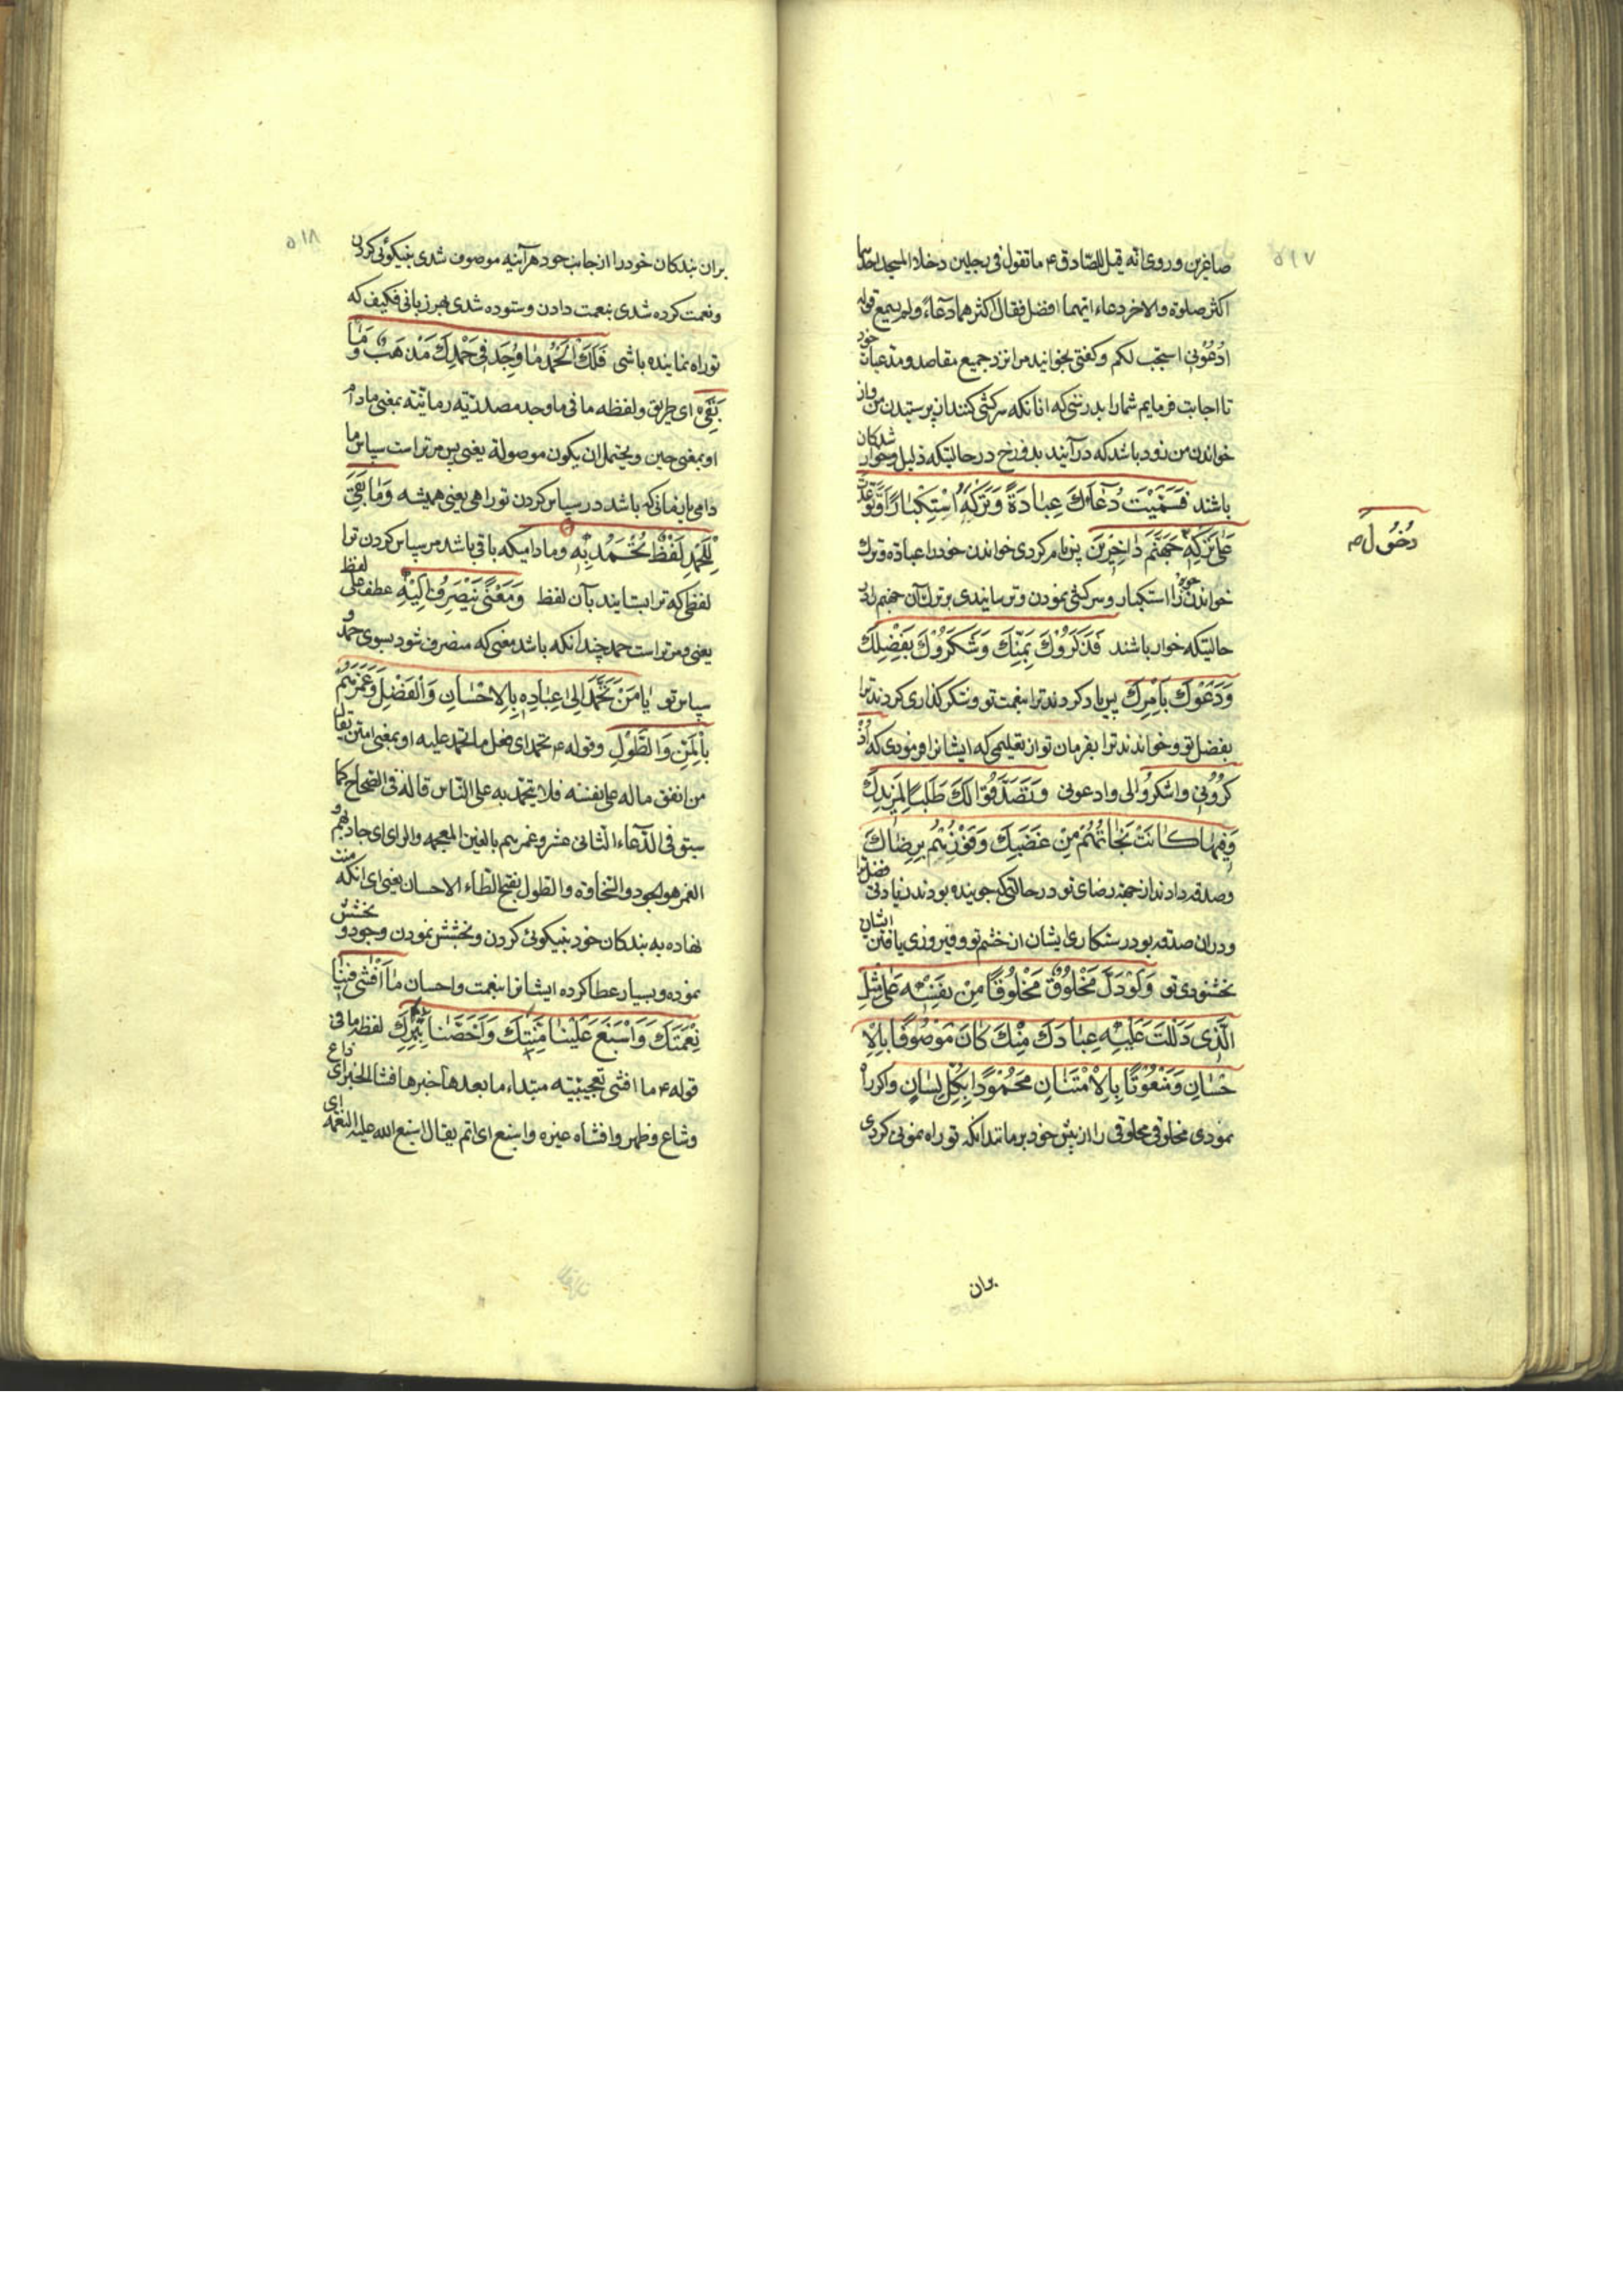 ۵۱۷
صاغرین و روی انّه قیل للصّادق ع ما تقول فی رجلین دخلا المسجد احدهما
اکثر صلوة والاخر دعاء ایّهما افضل فقال اکثرهما دعاءً ولم یسمع قوله
ادْعُوْنی استجب لکم وکفتی بخوانید مرا نزد جمیع مقاصد و مدعیات خود
تا اجابت فرمایم شما را بدرستی که انانکه سرکشی کنند از پرستیدن من و از
خواندن من زود باشد که در آیند بدوزخ در حالیتکه ذلیل و خوار شدکان
باشند فَسَمَّیْتَ دُعَاءَكَ عِبَادَةً وَتَرْکَهُ اسْتِکْبَارًا وَتَوَعَّدْتَ
عَلی تَرْکِهِ جَهَنَّمَ دَاخِرِیْنَ پس نام کردی خواندن خود را عبادة و ترك
دُخُوْلَ ص
خواندن خود را استکبار و سرکشی نمودن و ترسانیدی بر ترك آن جهنم در
حالتیکه خوار باشند فَذَکَرُوْكَ بِمَنِّكَ وَشَکَرُوْكَ بِفَضْلِكَ
وَدَعَوْكَ بِاَمْرِكَ پس یاد کردند ترا بنعمت تو و شکر کذاری کردند ترا
بفضل تو و خواندند ترا بفرمان تو از تعلیمی که ایشانرا فرمودی که اذْ
کُرُوْنی واشکروا لی وادعونی وَتَصَدَّقُوْا لَكَ طَلَبًا لِمَزِیْدِكَ
وَفِیْهَا کَانَتْ نَجَاتُهُمْ مِنْ غَضَبِكَ وَفَوْزُهُمْ بِرِضَاكَ
وصدقه دادند از جهة رضای تو در حالتیکه جوینده بودند زیادتی فضل ترا
ودران صدقه بود رستکاری ایشان از خشم تو و فیروزی یافتن ایشان
بخشنودی تو وَلَوْ دَلَّ مَخْلُوْقٌ مَخْلُوْقًا مِنْ نَفْسِهِ عَلی مِثْلِ
الَّذِی دَلَلْتَ عَلَیْهِ عِبَادَكَ مِنْكَ کَانَ مَوْصُوْفًا بِالْاِ
حْسَانِ وَمَنْعُوْتًا بِالْاِمْتِنَانِ مَحْمُوْدًا بِکُلِّ لِسَانٍ واکر راه
نمودی مخلوقی مخلوقی را از پیش خود بر مانند انکه تو راه نمونی کردی
بران
۵۱۸
بران بندکان خود را از جانب خود هرآینه موصوف شدی بنیکوئی کردن
ونعت کرده شدی بنعمت دادن و ستوده شدی بهر زبانی فکیف که
تو راه نماینده باشی فَلَكَ الْحَمْدُ مَا وُجِدَ فِی حَمْدِكَ مَذْهَبٌ وَمَا
بَقِیَ ای طریق ولفظه ما فی ما وجد مصدریّه زمانیّة بمعنی مادام
او بمعنی حین ویحتمل ان یکون موصولة یعنی پس مر تراست سپاس ما
دامی یا زمانی که باشد در سپاس کردن تو راهی یعنی همیشه وَمَا بَقِیَ
لِلْحَمْدِ لَفْظٌ تُحْمَدُ بِهِ ومادامیکه باقی باشد مر سپاس کردن ترا
لفظی که ترا بستایند بآن لفظ وَمَعْنًی یَنْصَرِفُ اِلَیْهِ عطف علی لفظ
یعنی و مر تراست حمد چندانکه باشد معنی که منصرف شود بسوی حمد و
سپاس تو یَا مَنْ تَحَمَّدَ اِلی عِبَادِهِ بِالْاِحْسَانِ وَالْفَضْلِ وَغَمَرَهُمْ
بِالْمَنِّ وَالطَّوْلِ وقوله ع تحمّد ای فعل ما تحمد علیه او بمعنی امتن یقال
من انفق ماله علی نفسه فلا یتحمّد به علی النّاس قاله فی الصحاح کما
سبق فی الدّعاء الثّانی عشر وغمرهم بالغین المعجمه والرای ای جادهم و
الغمر هو الجود والسّخاوة والطول بفتح الطّاء الاحسان یعنی ای انکه منت
نهاده به بندکان خود بنیکوئی کردن وبخشش نمودن وجود و بخشش
نموده و بسیار عطا کرده ایشانرا بنعمت واحسان مَا اَفْشی فِیْنَا
نِعْمَتَكَ وَاَسْبَغَ عَلَیْنَا مِنَّتَكَ وَاَخَصَّنَا بِبِرِّكَ لفظه ما فی
قوله ع ما افشی تعجبیّته مبتداء ما بعدها خبرها فشا الخبر ای ذاع
وشاع وظهر وافشاه غیره واسبغ ای اتم یقال اسبغ الله علیه النعمة ای